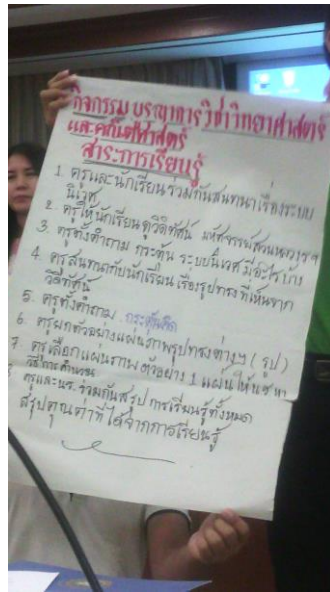 กิจกรรม บูรณาการวิชาวิทยาศาสตร์
และคณิตศาสตร์
สาระการเรียนรู้
1. ครูและนักเรียนร่วมกันสนทนาเรื่องระบบ
นิเวศ
2. ครูให้นักเรียนดูวิดีทัศน์ มหัศจรรย์สวนหลวงฯ
3. ครูตั้งคำถาม กระตุ้น ระบบนิเวศ มีอะไรบ้าง
4. ครูสนทนากับนักเรียน เรื่องรูปทรงที่เห็นจาก
วิดีทัศน์
5. ครูตั้งคำถาม กระตุ้นคิด
6. ครูยกตัวอย่างแผ่นภาพรูปทรงต่างๆ ( รูป )
7. ครูเลือกแผ่นภาพ ตัวอย่าง 1 แผ่น ให้นร. หา
วิธีการคำนวณ
ครูและนร. ร่วมกันสรุป การเรียนรู้ทั้งหมด
สรุปคุณค่าที่ได้จากการเรียนรู้